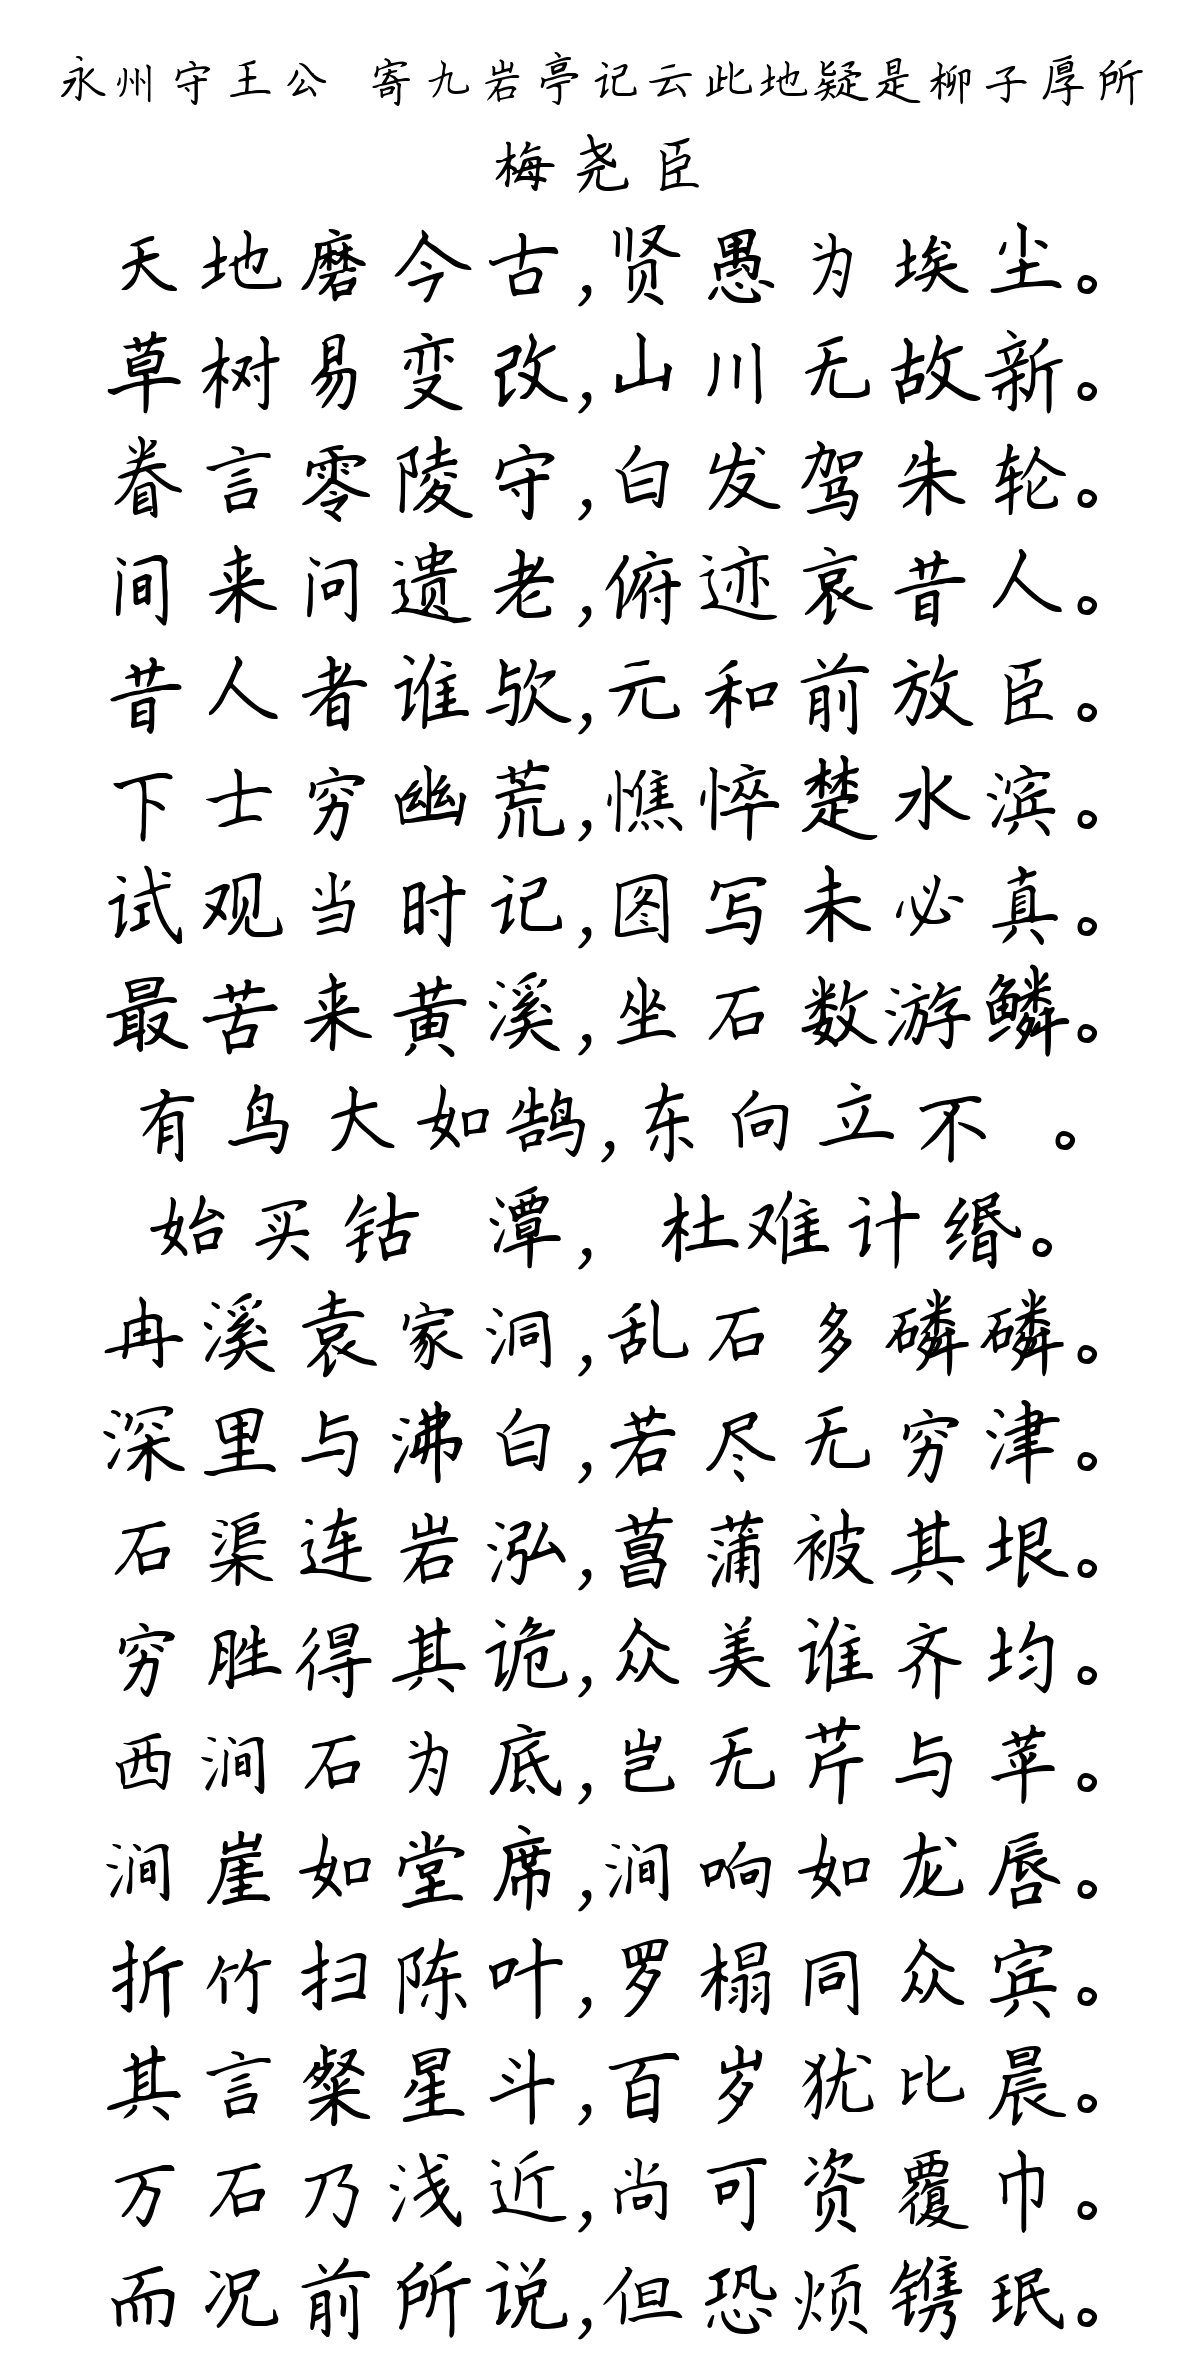 永州守王公 寄九岩亭记云此地疑是柳子厚所
梅尧臣
天地磨今古,贤愚为埃尘。
草树易变改,山川无故新。
眷言零陵守,白发驾朱轮。
间来问遗老,俯迹哀昔人。
昔人者谁欤,元和前放臣。
下士穷幽荒,憔悴楚水滨。
试观当时记,图写未必真。
最苦来黄溪,坐石数游鳞。
有鸟大如鹄,东向立不 。
始买钴 潭, 杜难计缗。
冉溪袁家洞,乱石多磷磷。
深里与沸白,若尽无穷津。
石渠连岩泓,菖蒲被其垠。
穷胜得其诡,众美谁齐均。
西涧石为底,岂无芹与苹。
涧崖如堂席,涧响如龙唇。
折竹扫陈叶,罗榻同众宾。
其言粲星斗,百岁犹比晨。
万石乃浅近,尚可资覆巾。
而况前所说,但恐烦镌珉。